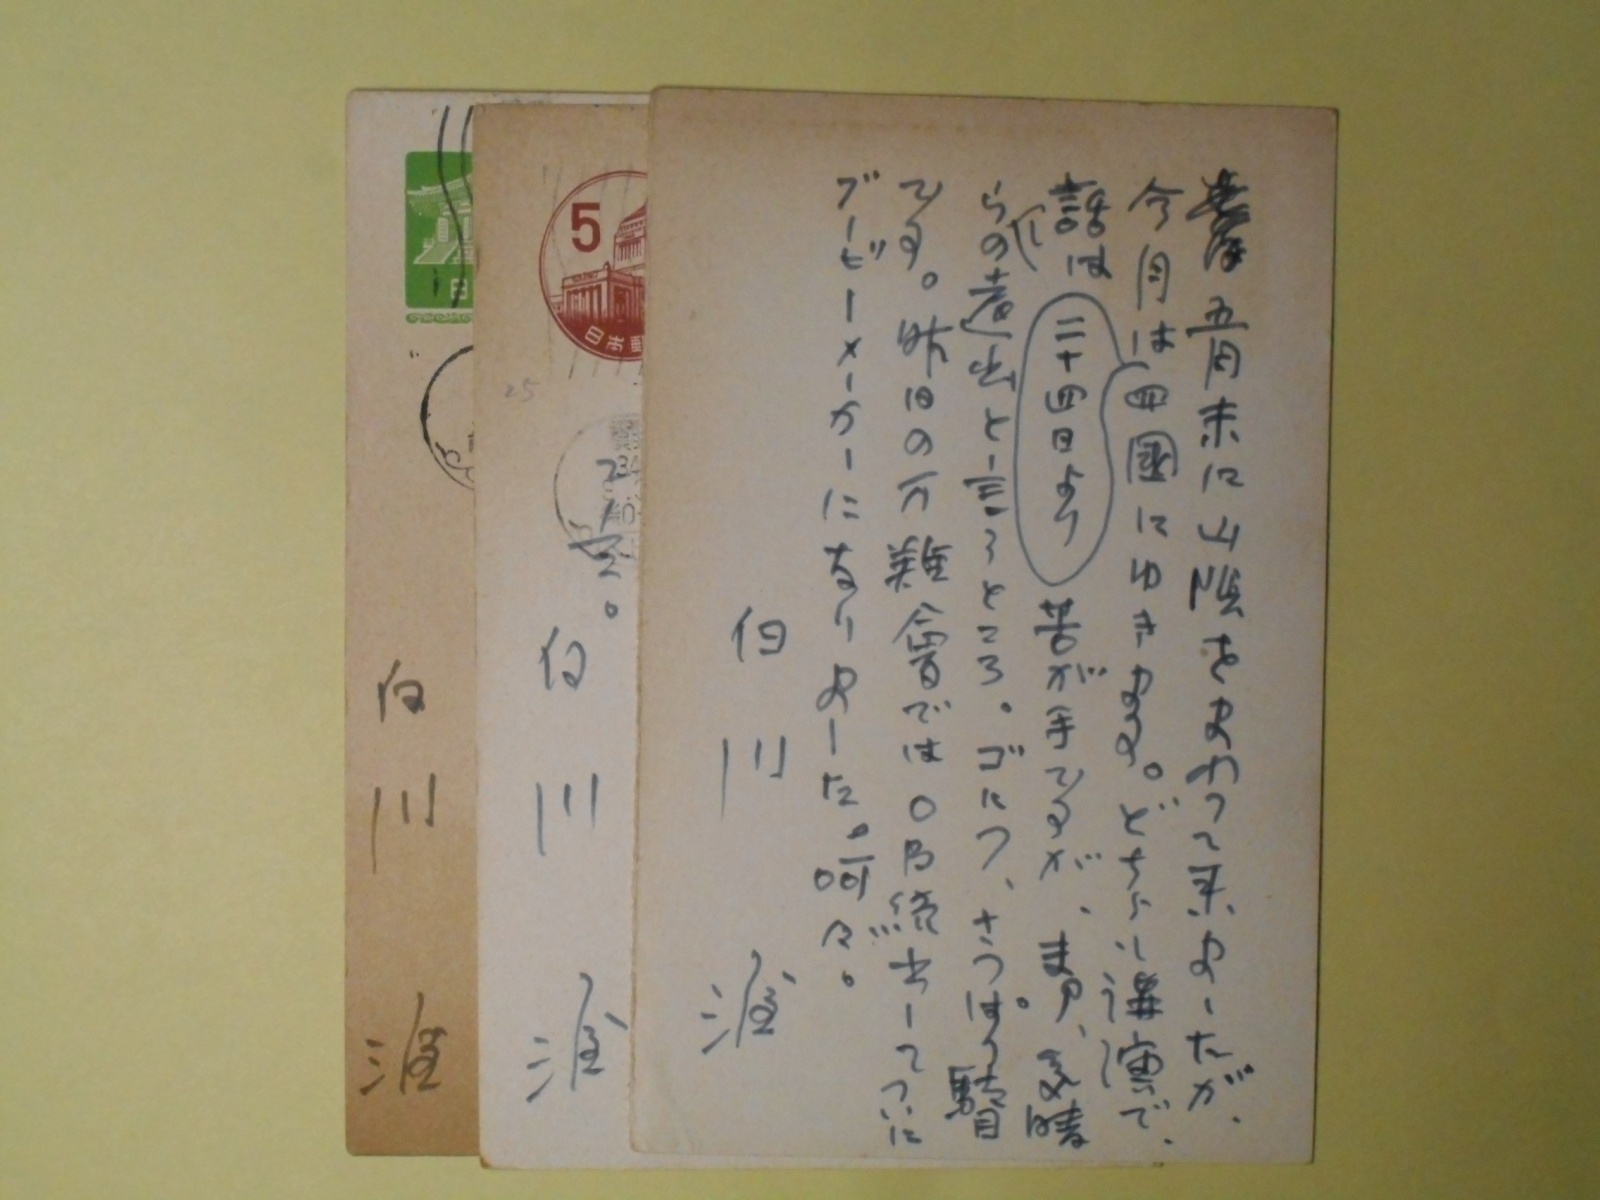 五月末に山陰をまわって来ましたが、
今月は四國にゆきます。どちらも講演で、
話は苦が手ですが、まア、気晴
二十四日より
らしの遠出と言うところ。ゴルフ、さっぱり駄目
です。昨日の万難會ではOB続出してついに
ブービーメーカーになりました。呵々。
白川渥
白川渥
白川渥
5
日本郵
日
25